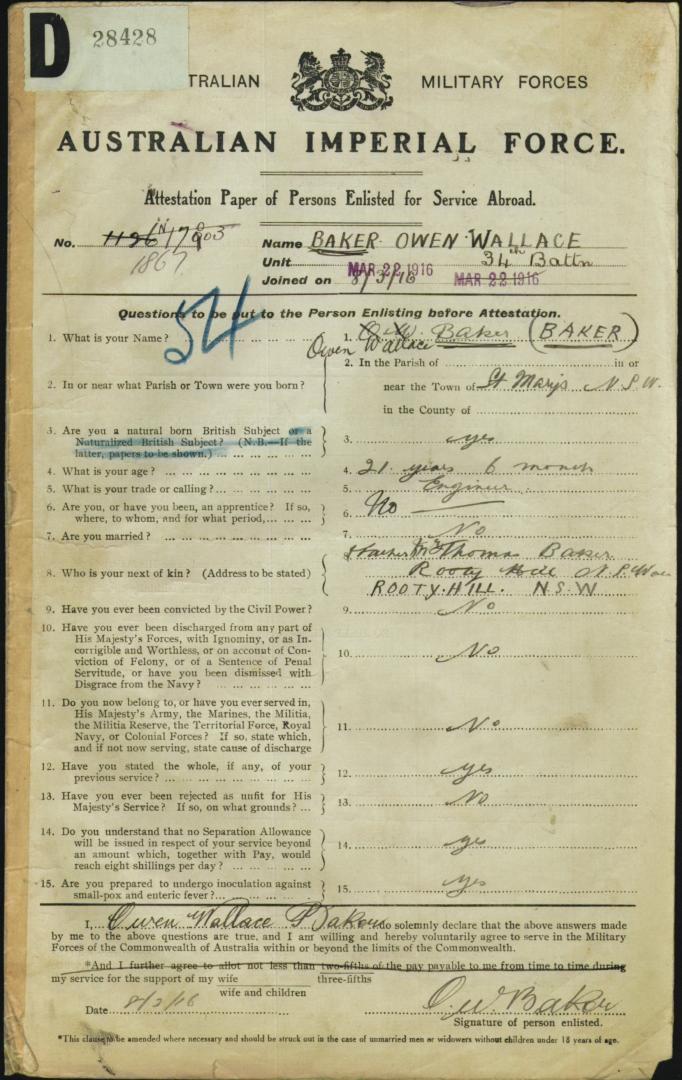 D 28428
TRALIAN MILITARY FORCES
AUSTRALIAN IMPERIAL FORCE.
Attestation Paper of Persons Enlisted for Service Abroad.
No. 1196 Name BAKER OWEN WALLACE
1867 Unit 34th Battn
Joined on 8/3/16 MAR 22 1916 MAR 22 1916
54
Questions to be put to the Person Enlisting before Attestation.
1. What is your Name? 1. O.W. Baker (BAKER)
Owen Wallace
2. In or near what Parish or Town were you born? 2. In the Parish of in or
near the Town of St Marys N.S.W.
in the County of
3. Are you a natural born British Subject or a
Naturalized British Subject? (N.B.—If the
latter, papers to be shown.) 3. yes
4. What is your age? 4. 21 years 6 month
5. What is your trade or calling? 5. Engineer
6. Are you, or have you been, an apprentice? If so,
where, to whom, and for what period, 6. No
7. Are you married? 7. No
8. Who is your next of kin? (Address to be stated) Father Mr Thomas Baker
Rooty Hill N.S.Wales
ROOTY. HILL. N.S.W
9. Have you ever been convicted by the Civil Power? 9. No
10. Have you ever been discharged from any part of
His Majesty's Forces, with Ignominy, or as In-
corrigible and Worthless, or on account of Con-
viction of Felony, or of a Sentence of Penal
Servitude, or have you been dismissed with
Disgrace from the Navy? 10. No
11. Do you now belong to, or have you ever served in,
His Majesty's Army, the Marines, the Militia,
the Militia Reserve, the Territorial Force, Royal
Navy, or Colonial Forces? If so, state which,
and if not now serving, state cause of discharge 11. No
12. Have you stated the whole, if any, of your
previous service? 12. yes
13. Have you ever been rejected as unfit for His
Majesty's Service? If so, on what grounds? 13. No
14. Do you understand that no Separation Allowance
will be issued in respect of your service beyond
an amount which, together with Pay, would
reach eight shillings per day? 14. yes
15. Are you prepared to undergo inoculation against
small-pox and enteric fever? 15. Yes
I, Owen Wallace Baker do solemnly declare that the above answers made
by me to the above questions are true, and I am willing and hereby voluntarily agree to serve in the Military
Forces of the Commonwealth of Australia within or beyond the limits of the Commonwealth.
*And I further agree to allot not less than two-fifths of the pay payable to me from time to time during
three-fifths
my service for the support of my wife
wife and children
Date 8/3/16 O.W. Baker
Signature of person enlisted.
*This clause to be amended where necessary and should be struck out in the case of unmarried men or widowers without children under 18 years of age.